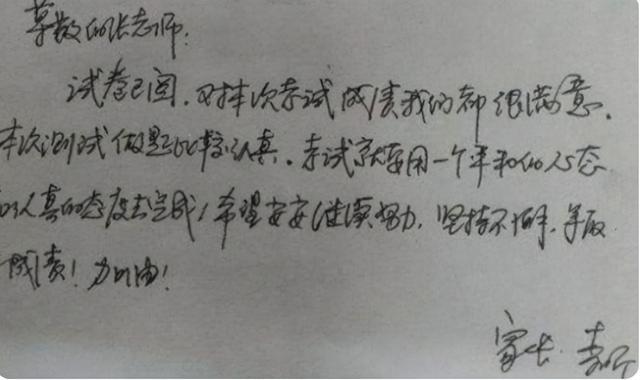 尊敬的张老师:
试卷已阅,对本次考试成绩我们都很满意,
本次测试做题比较认真,考试就要用一个平和的心态
认真的态度去完成!希望安安继续努力,坚持不懈,争取
成绩!加油!
家长:李